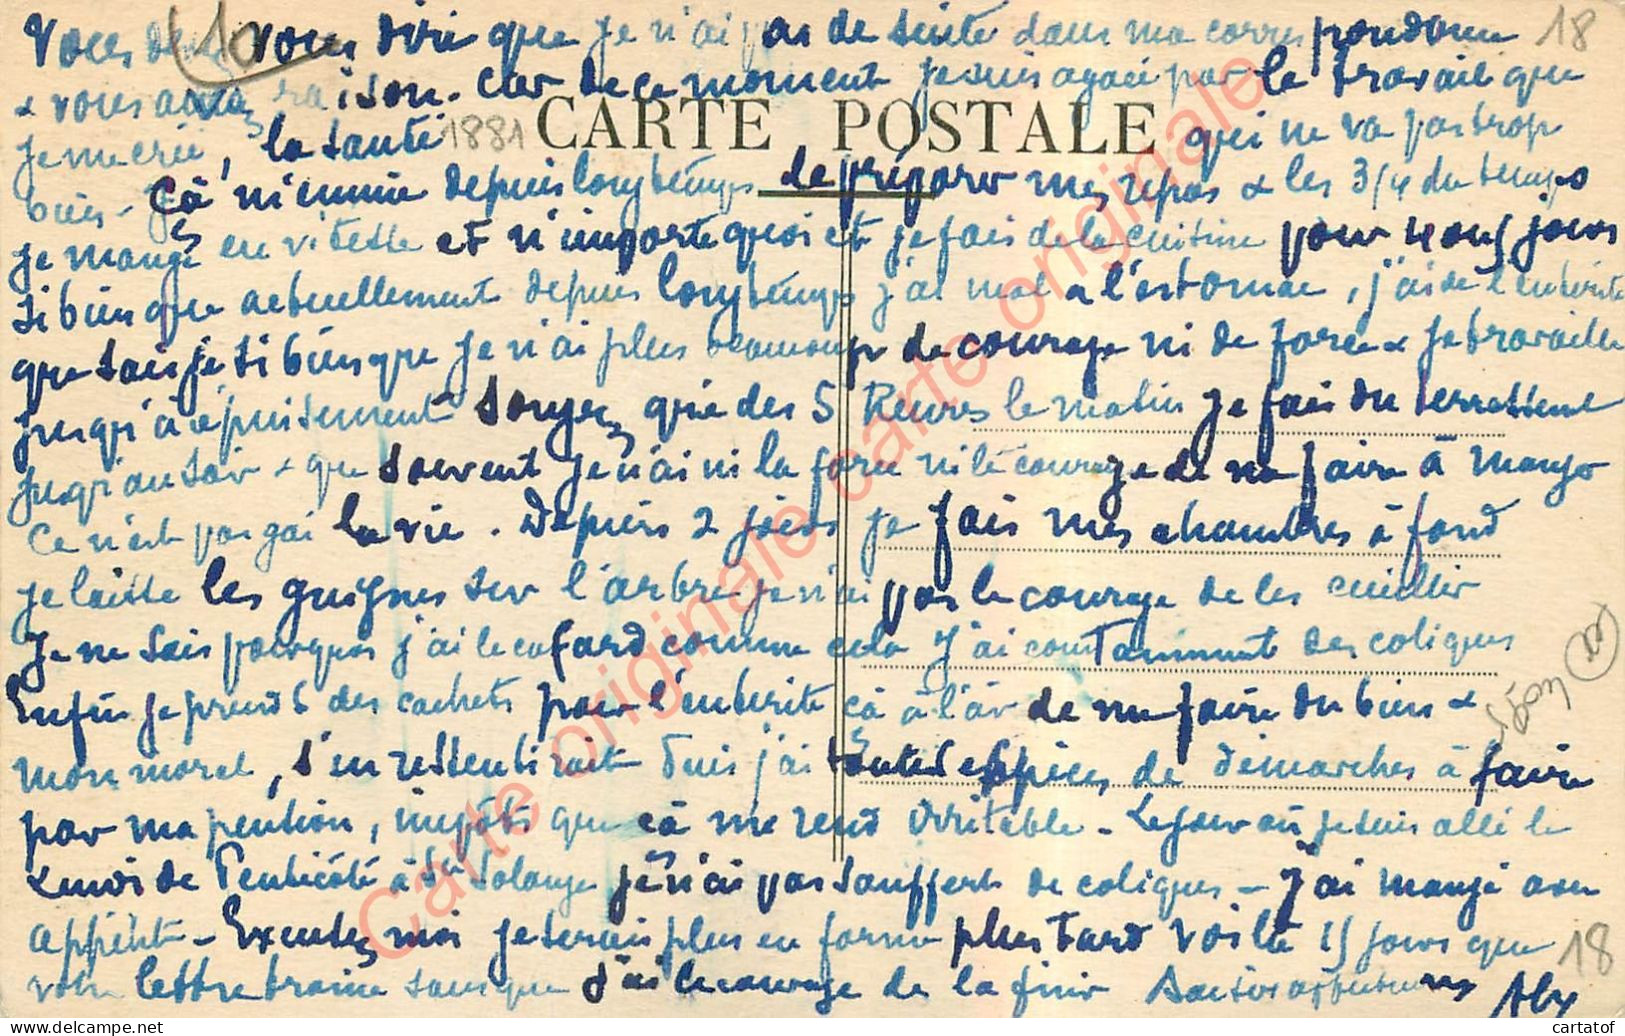 Vous devez vous dire que je n'ai pas de suite dans ma correspondance 18
& vous avez raison. Car de ce moment je suis agacé par le travail que
CARTE POSTALE
je me crée, la santé 1881 qui ne va pas trop
bien - Çà m'ennuie depuis longtemps de préparer mes repas & les 3/4 du temps
je mange en vitesse et n'importe quoi et je fais de la cuisine pour jours
si bien que actuellement depuis longtemps j'ai mal a l'estomac, j'ai de l'entérite
que sais je si bien que je n'ai plus beaucoup de courage ni de force & je travaille
jusqu'à épuisement - Songez que dès 5 heures le matin je fais du terrassement
jusqu'au soir & que souvent je n'ai ni la force ni le courage de me faire à manger
Ce n'est pas gai la vie. Depuis 2 jours je fais mes chambres à fond
je laisse les guignes sur l'arbre je n'ai pas le courage de les cueillir
Je ne sais pourquoi j'ai le cafard comme cela J'ai constamment des coliques
Enfin je prends des cachets pour l'entérite çà à l'air de me faire du bien &
mon moral, s'en ressentirait Puis j'ai toutes espèces de démarches à faire
par ma pention, impôts que çà me rend irritable - Le jour où je suis allé le
Lundi de Pentecôté à Ste Solange je n'ai pas souffert de coliques - J'ai mangé avec
appétit - Excusez moi je serais plus en forme plus tard Voilà 15 jours que
votre lettre traine sans que j'ai le courage de la finir 18
Carte originale carte originale carte originale
cartatof